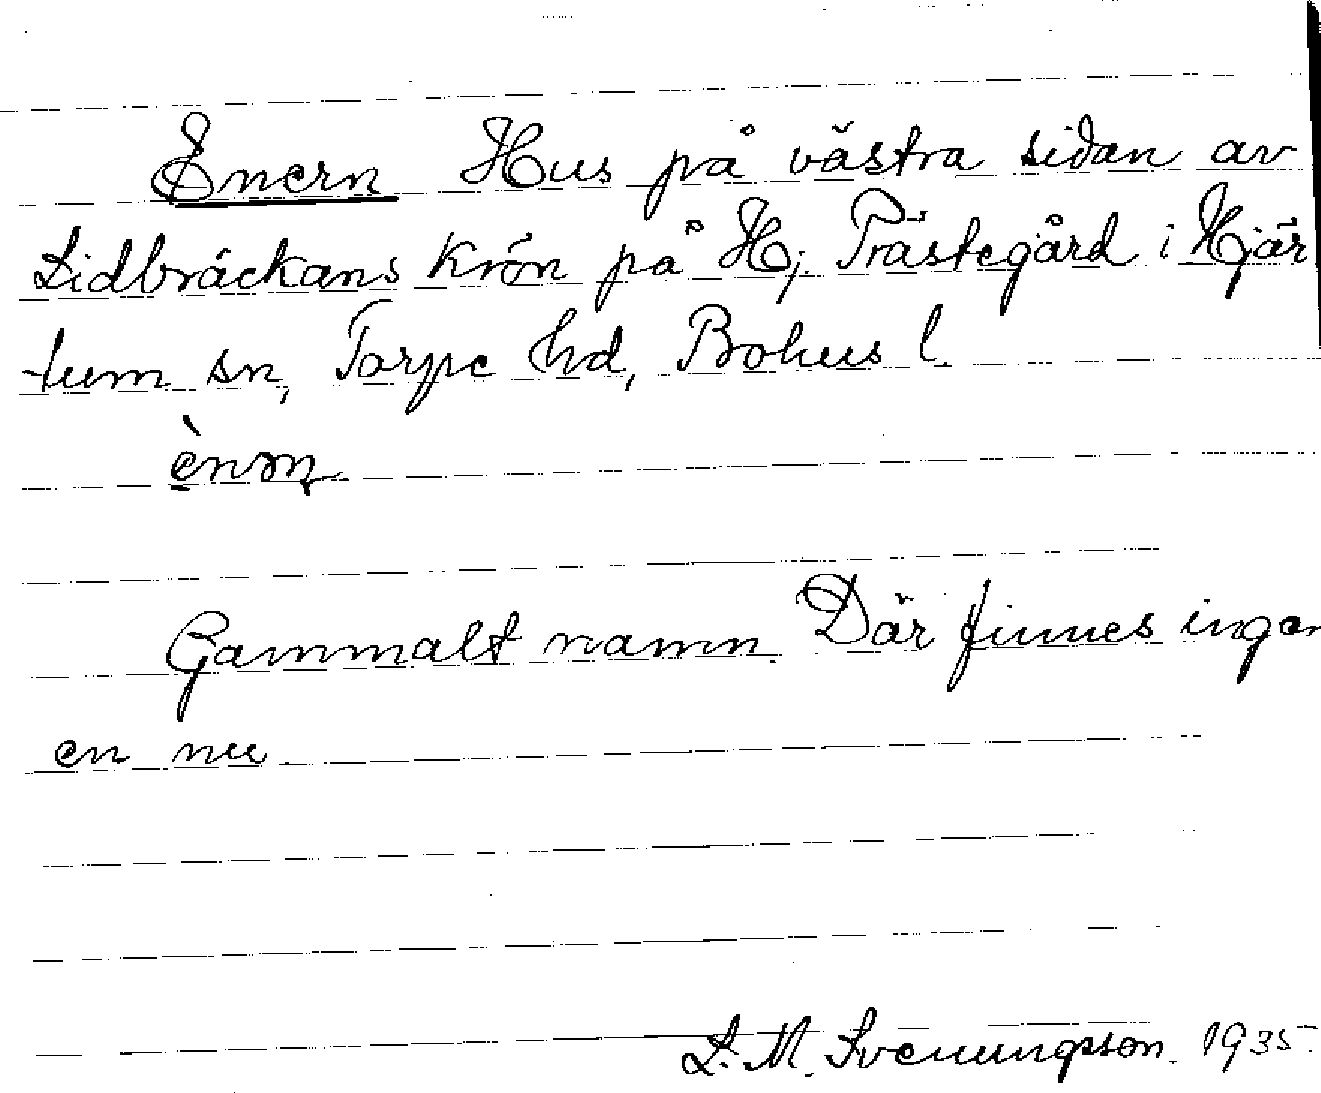 Enern Hus på västra sidan av
Lidbräckans krön på Hj. Prästegård i Hjär
tum sn, Torpe hd, Bohus l.
Gammalt namn. Där finnes ingen
en nu
S. M. Svenungsson. 1935.